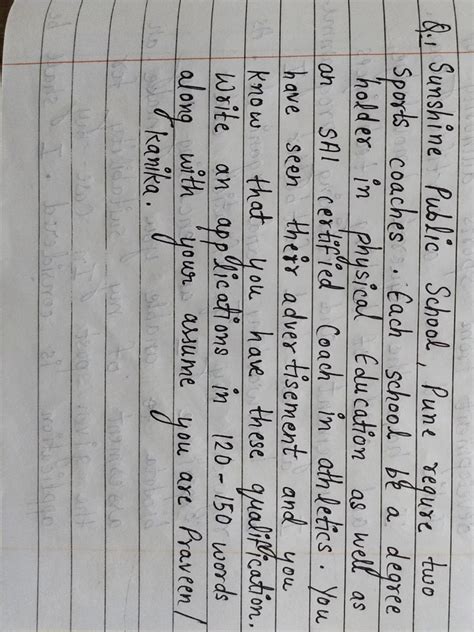 Q.1 Sunshine Public School, Pune requre two
Sports coaches. Each school be a degree
holder in physical Education as well as
an SAI certified Coach in athletics. You
have seen their advertisement and you
know that you have these qualification.
Write an applications in 120-150 words
along with your assume you are Praveen/
Kanika.